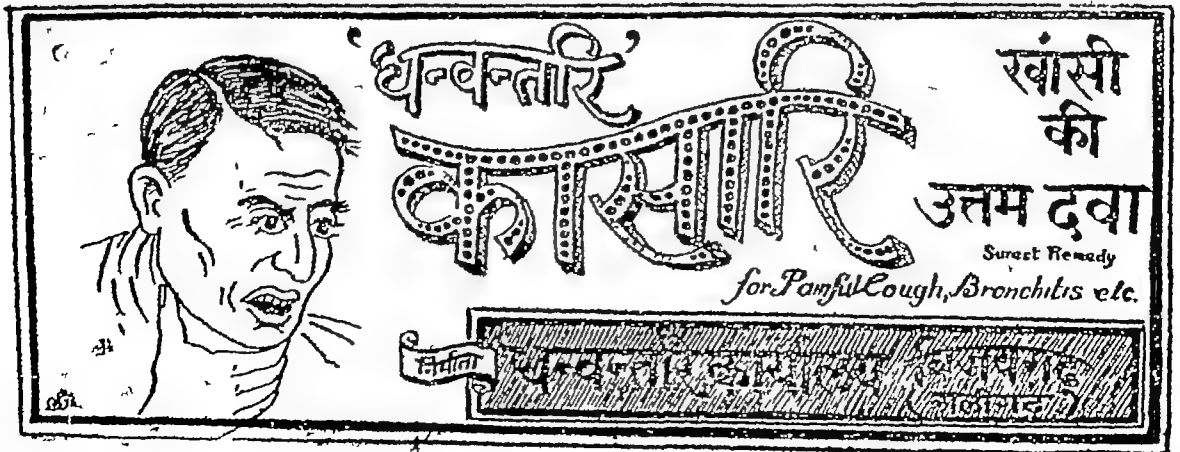 ‘धन्वन्तरि’
कासारि
खांसी
की
उत्तम दवा
Surest Remedy
for Painful Cough, Bronchitis etc.
निर्माता
धन्वन्तरि कार्यालय विजयगढ़